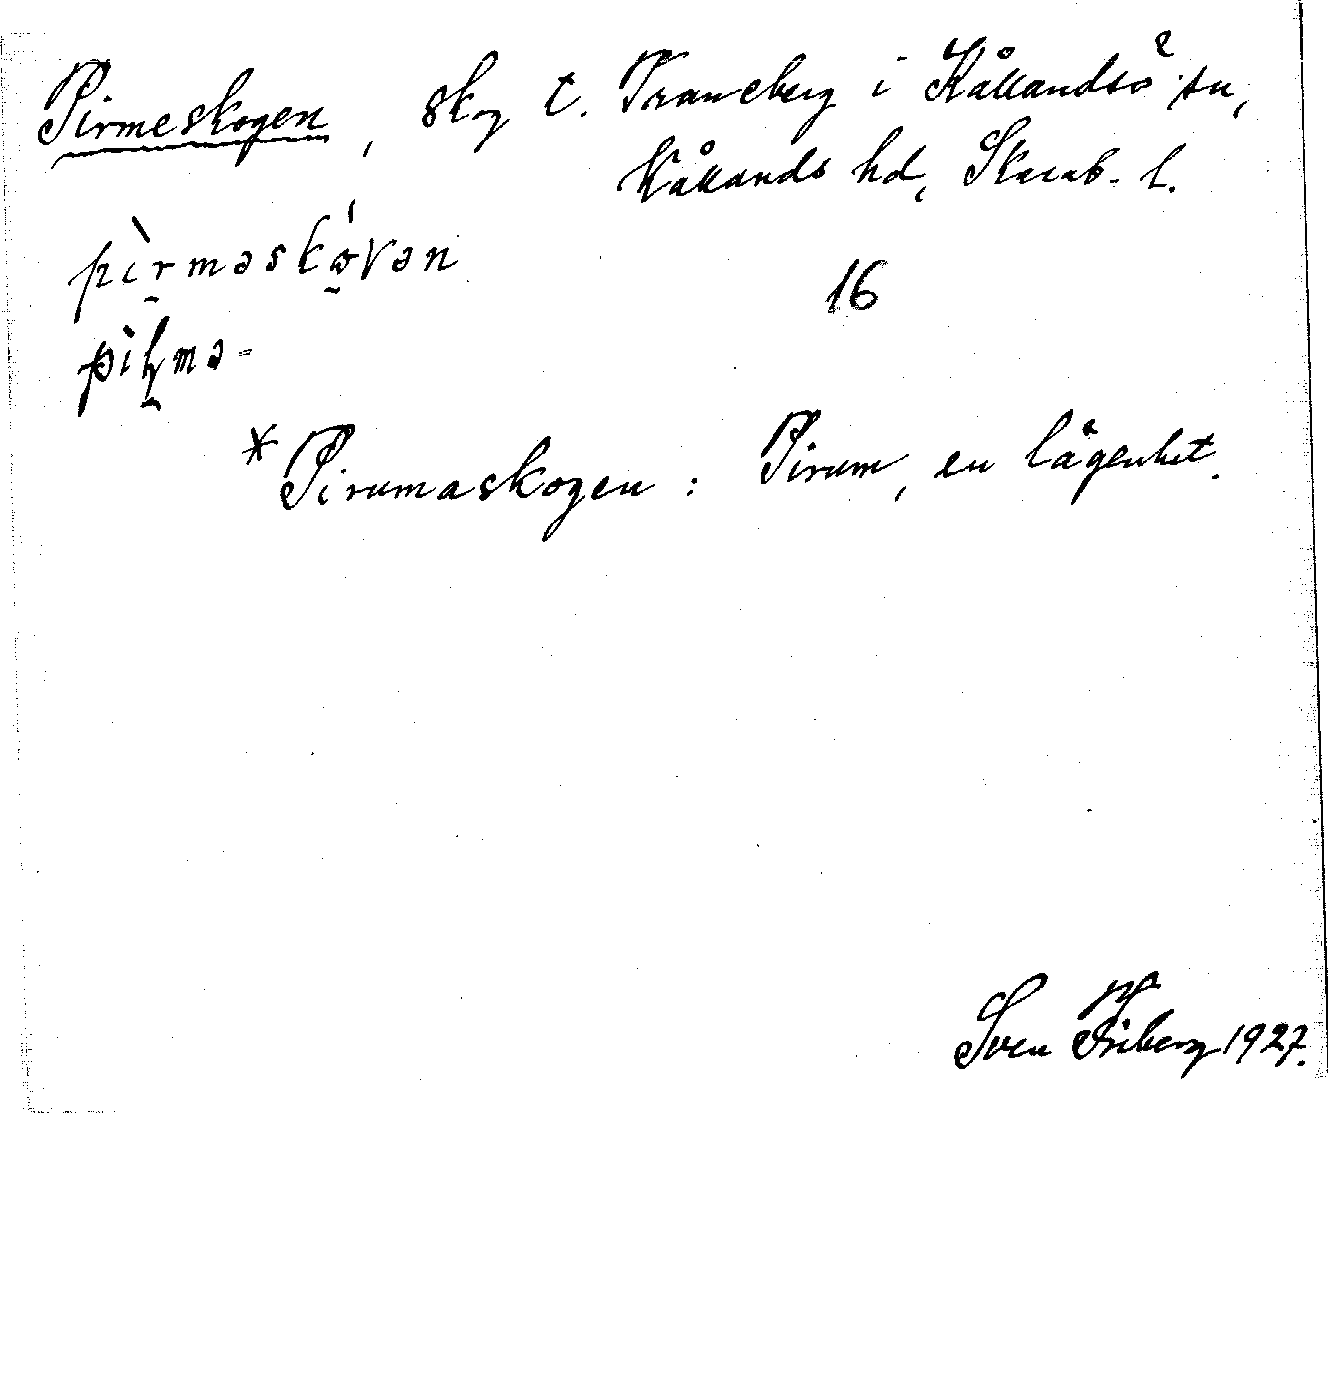 Pirmeskogen, skog t. Traneberg i Kållandsö sn,
Kållands hd, Skarab. l.
pìrməskó̰vən
16
pìh̰mə-
*Pirumaskogen : Pirum, en lägenhet.
Sven Friberg 1927.